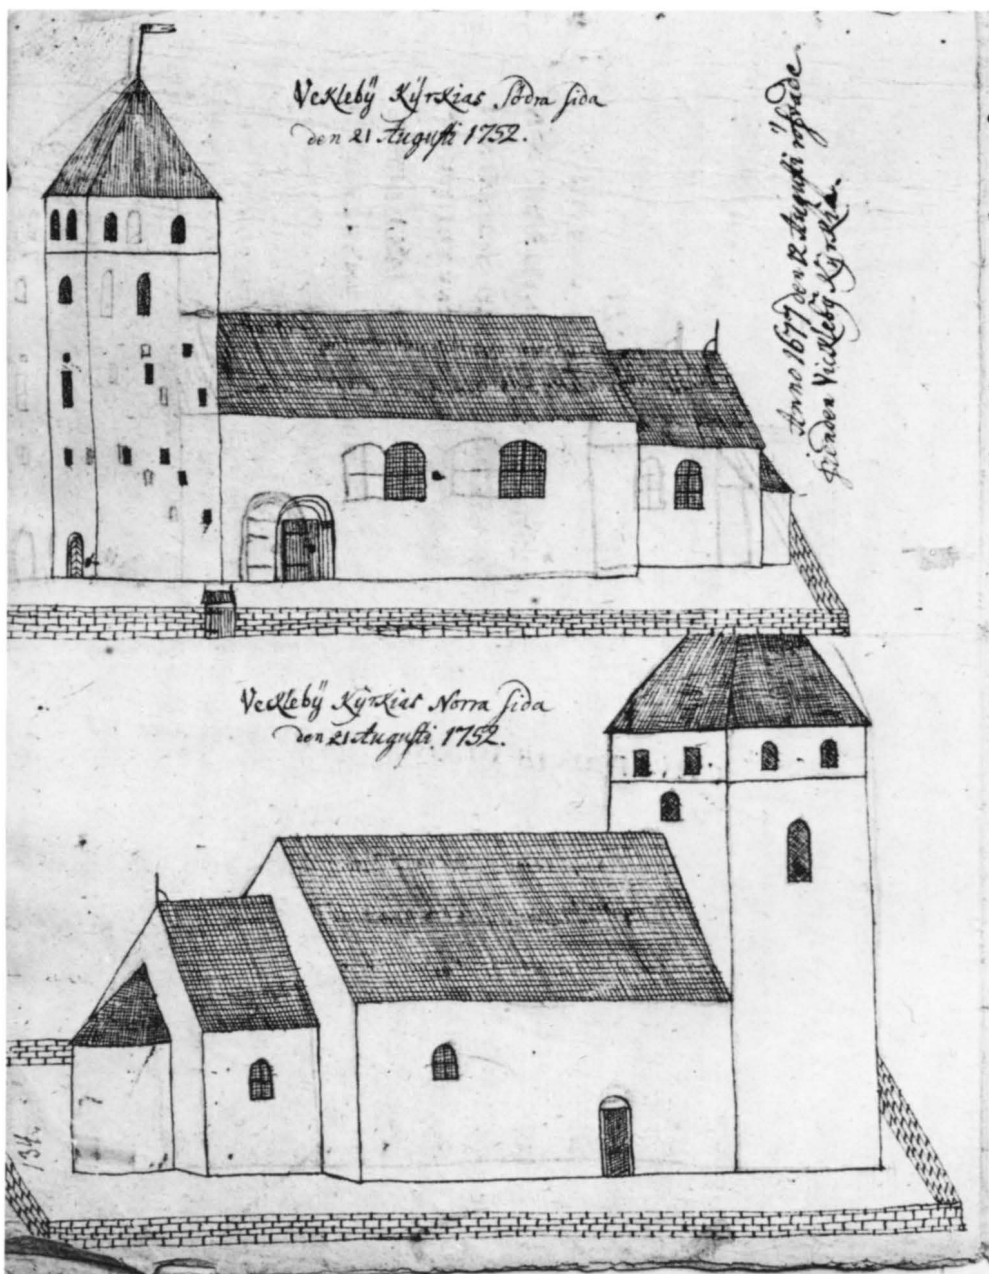 Vekleby̋ Ky̋rkias Södra sida
den 21 Augusti 1752.
Anno 1677 den 12 Augusti röfvade
fienden Vickleby̋ Ky̋rkia.
Vekleby̋ Ky̋rkias Norra sida
den 21 Augusti 1752.
134.